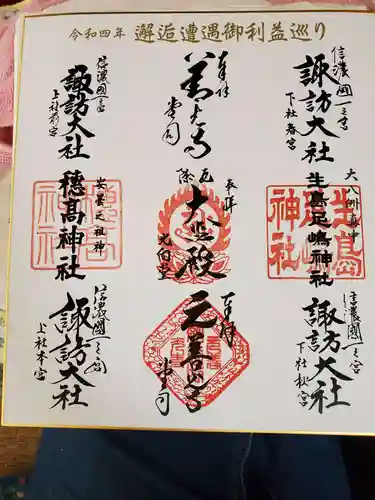 令和四年 邂逅遭遇御利益巡り
信濃國一之宮
諏訪大社
下社春宮
奉拝
善光寺
堂司
信濃國一之宮
諏訪大社
上社前宮
大八洲真中
生島足嶋神社
生島
足島
神社
奉拝
厄除
大悲殿
北向山
安曇之祖神
穂高神社
信濃國一之宮
諏訪大社
下社秋宮
奉拝
元善光寺
堂司
信濃國一之宮
諏訪大社
上社本宮